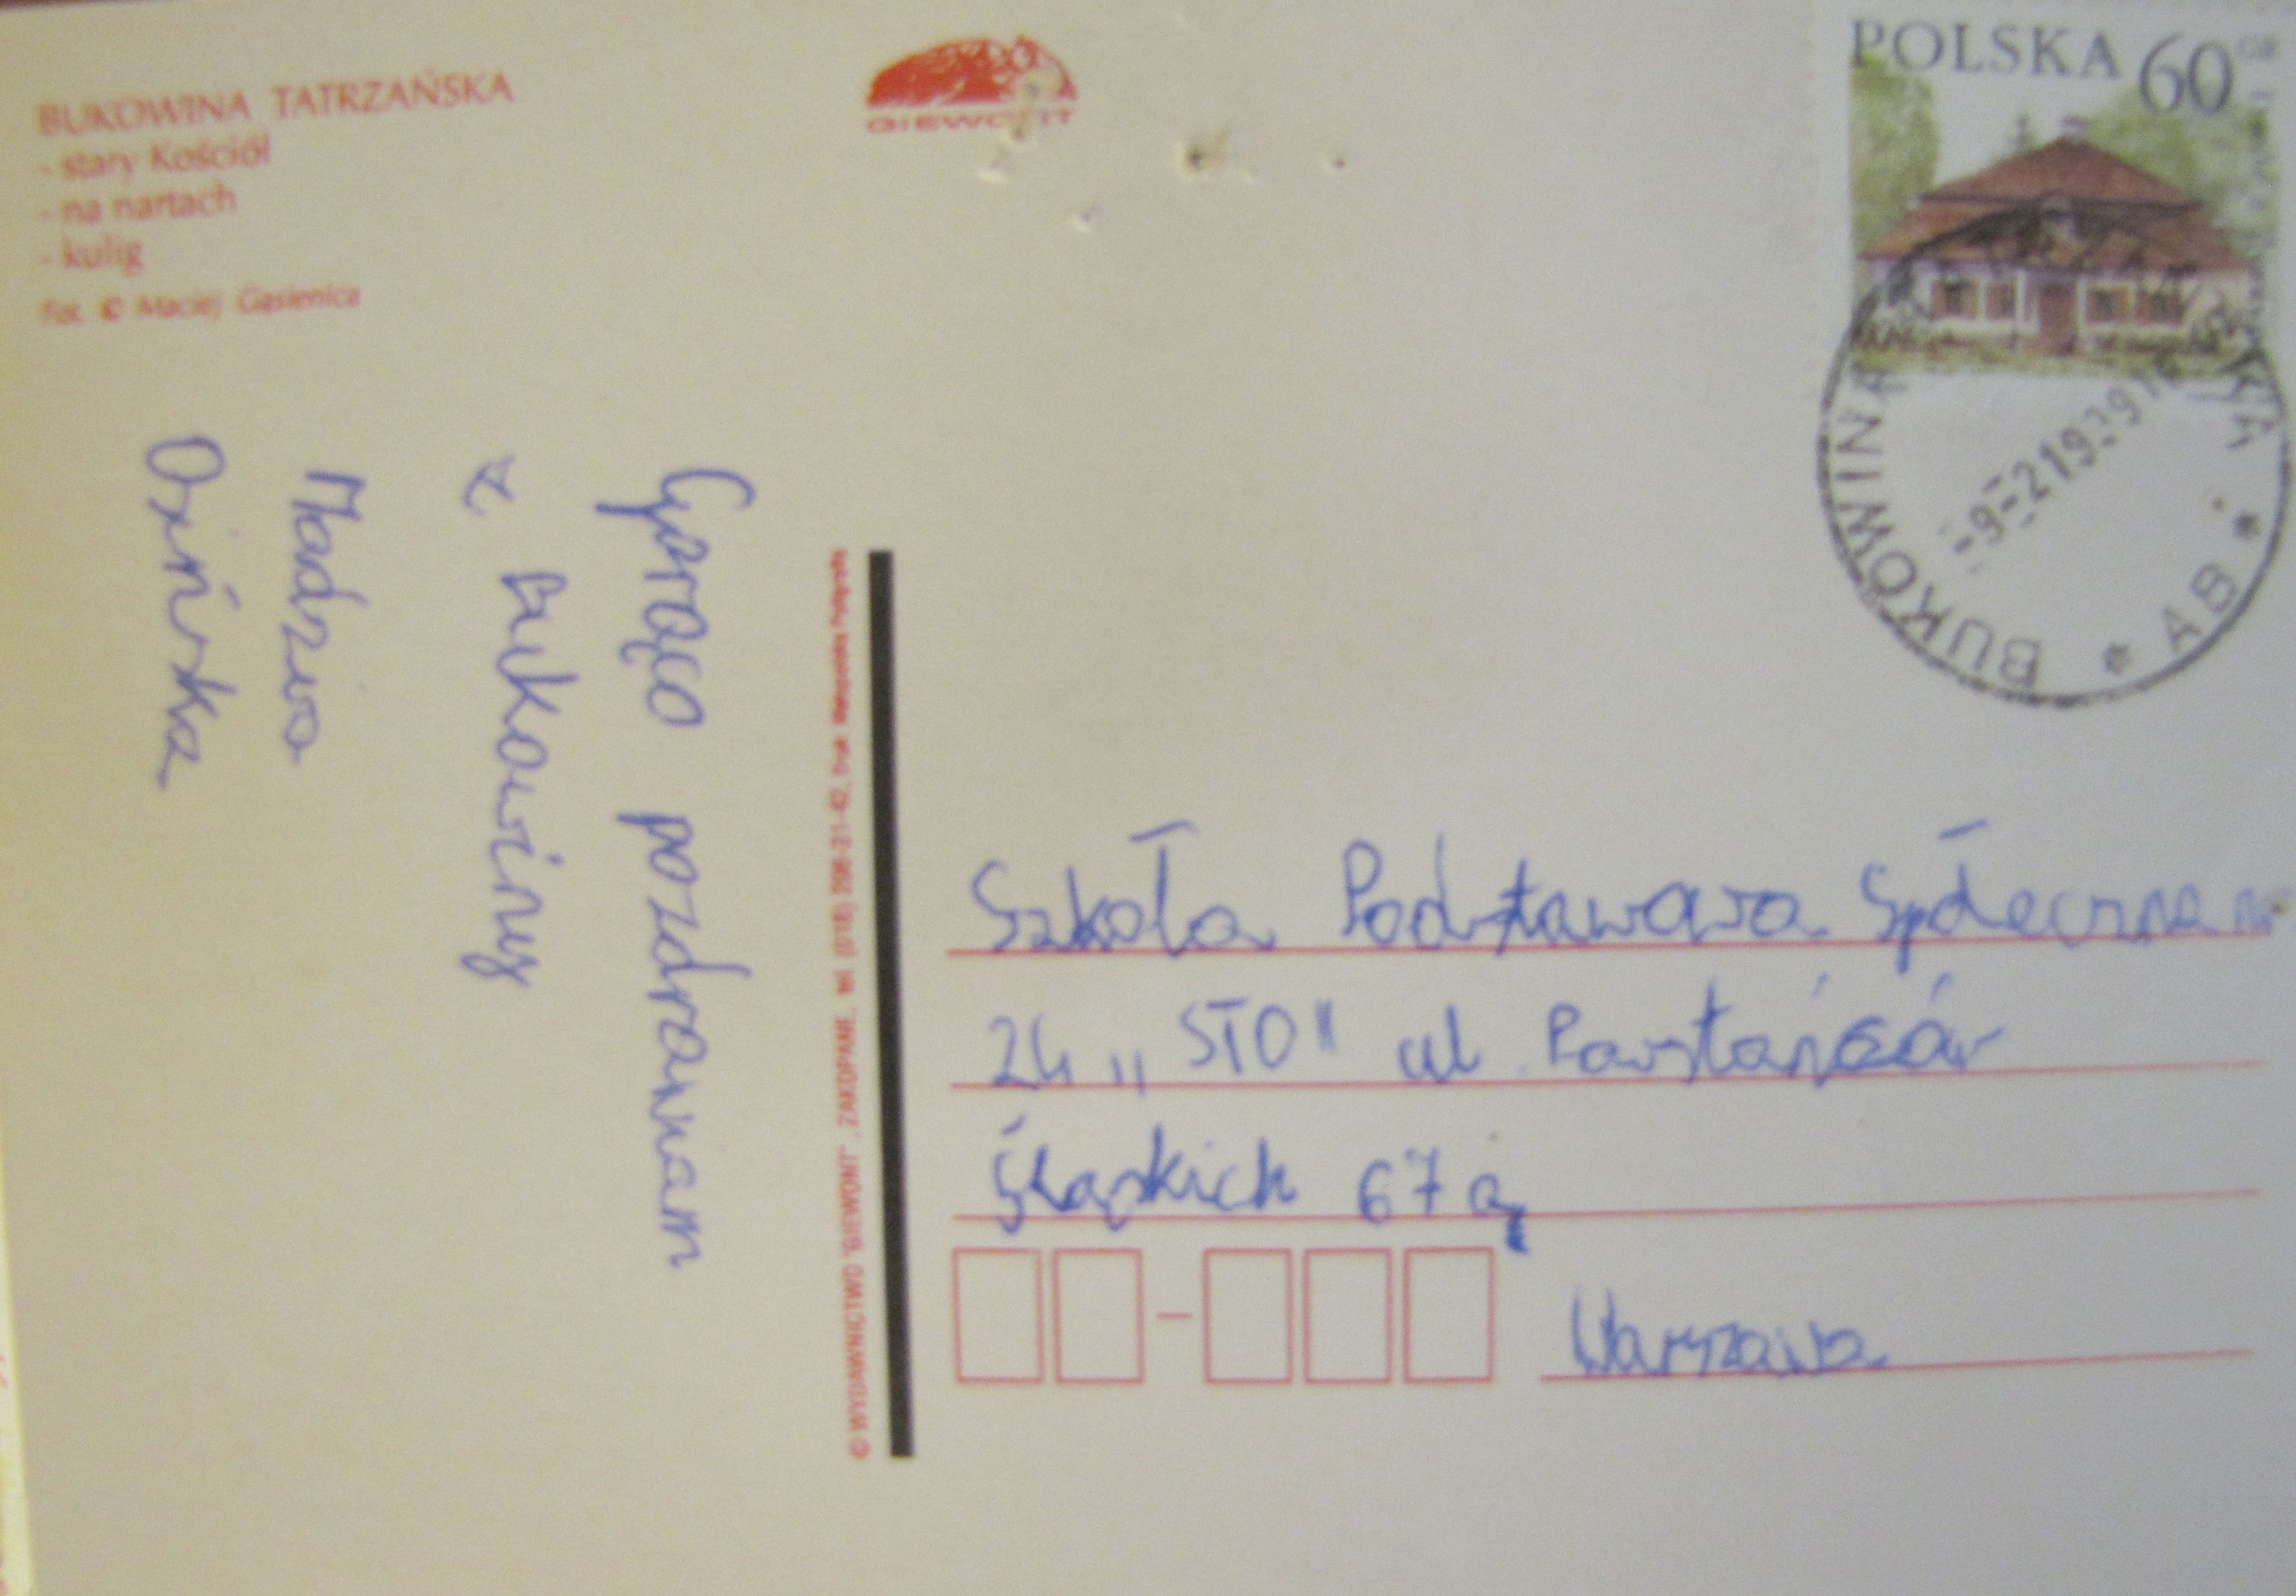 BUKOWINA TATRZAŃSKA
- stary Kościół
- na nartach
- kulig
Fot. © Maciej Gąsienica
GIEWONT
POLSKA 60 GR
BUKOWINA
* AB *
Gorąco pozdrawiam
z Bukowiny
Madzia
Ozińska
© WYDAWNICTWO "GIEWONT", ZAKOPANE, tel. (018) 206-31-42, Druk
Szkoła Podstawowa Społeczna nr
24 „STO" ul. Powstańców
Śląskich 67 a
Warszawa